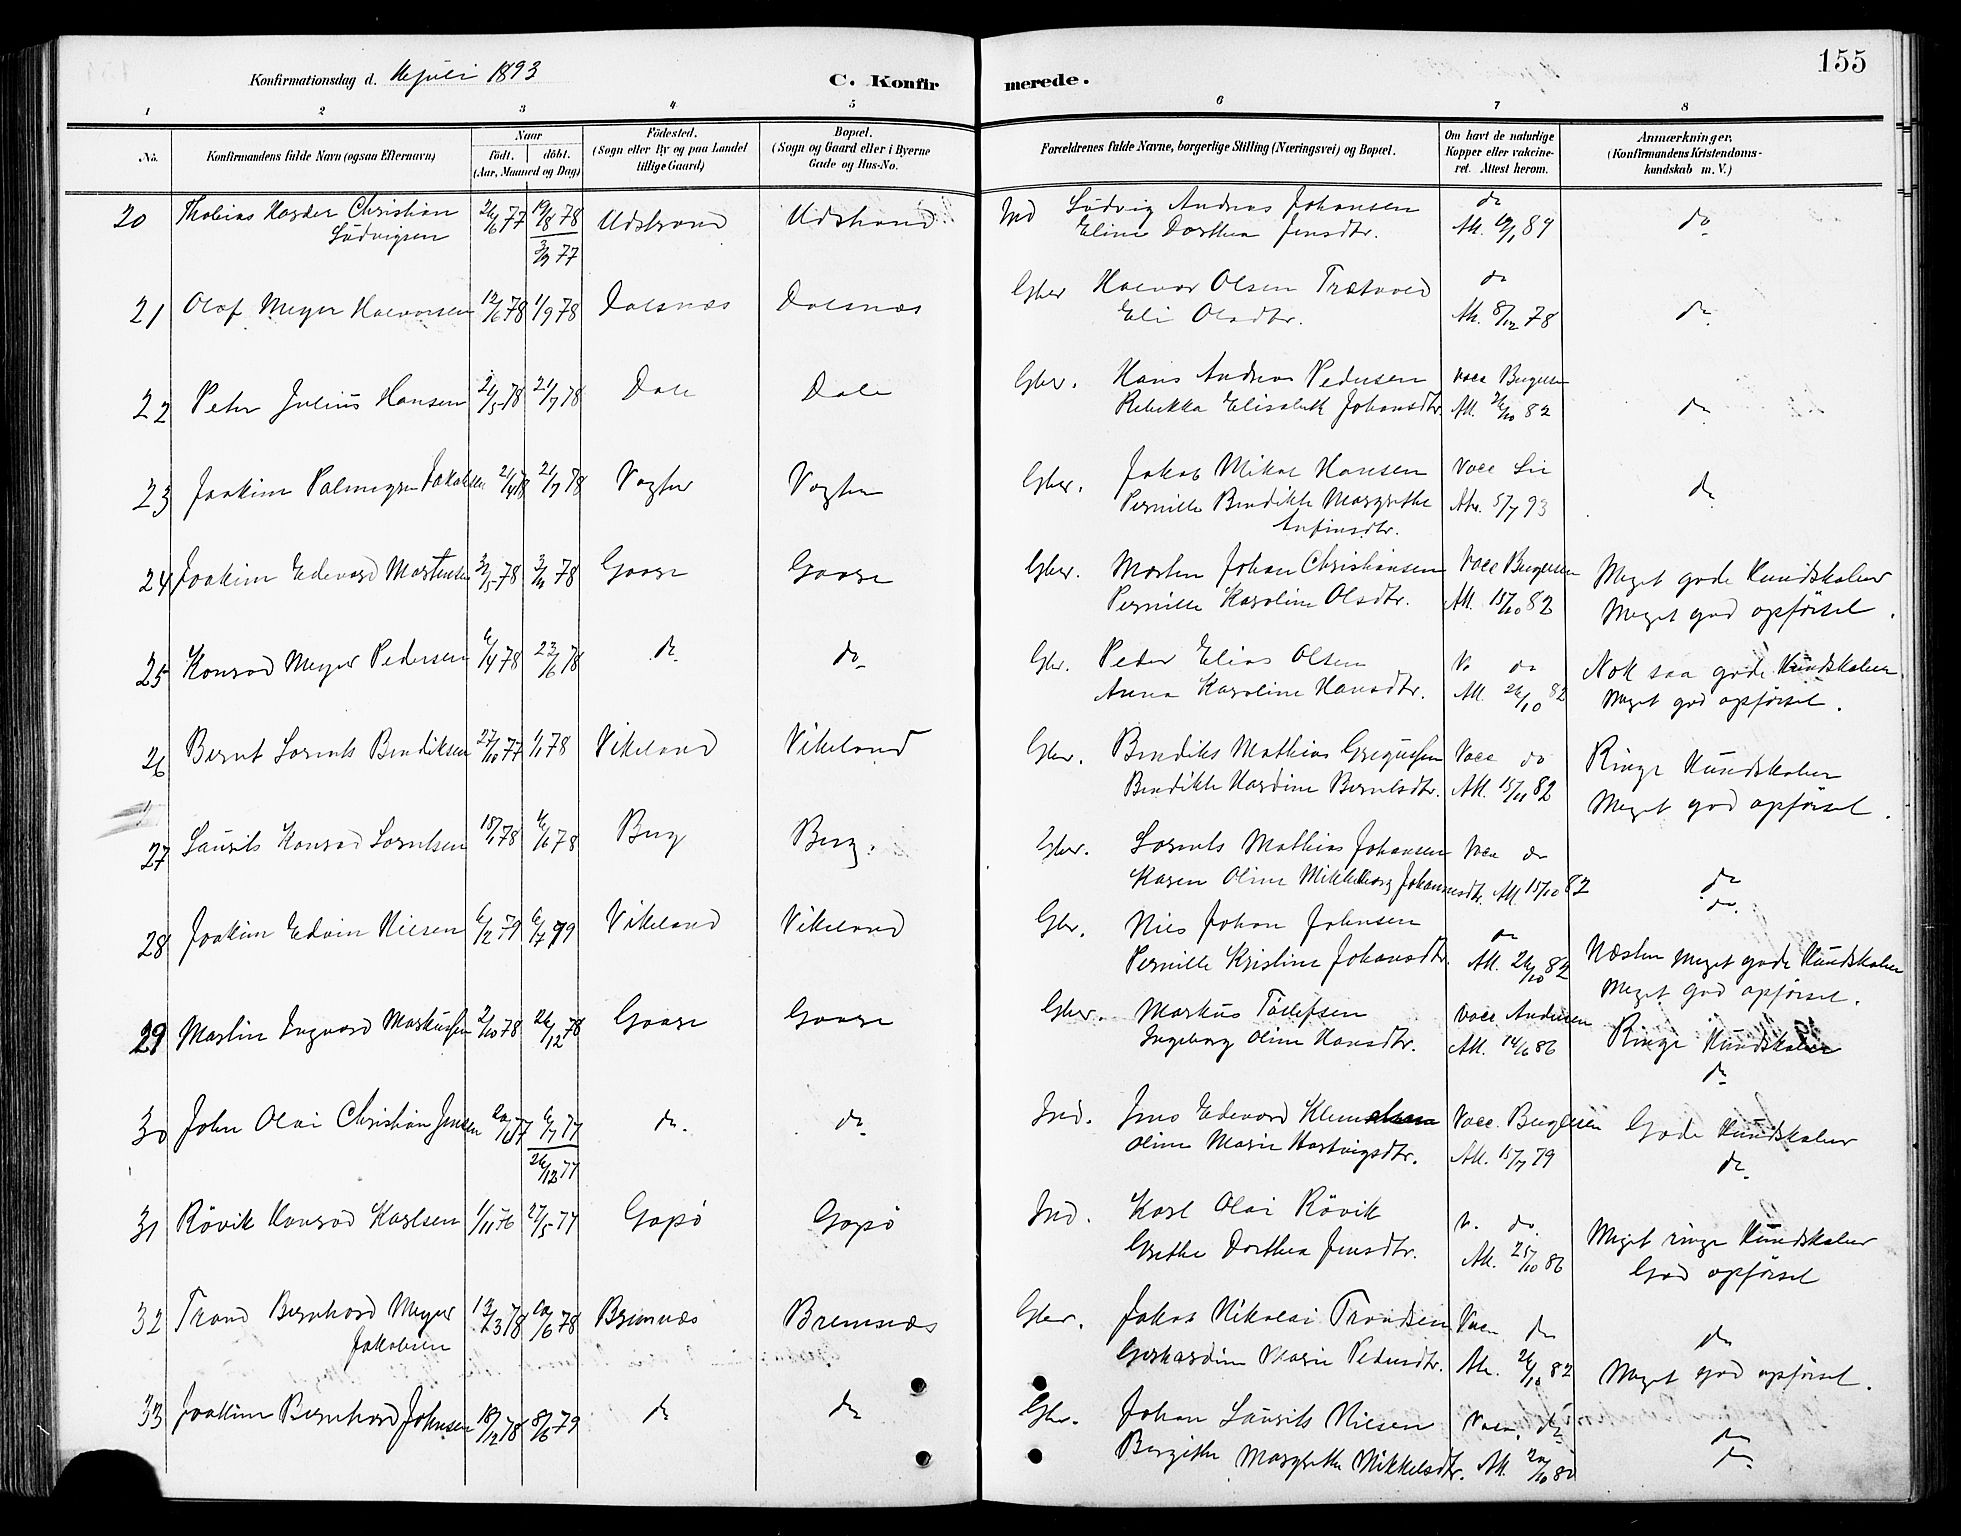 155
Konfirmationsdag d. juli 1893
C. Konfirmerede.
1 2 3 4 5 6 7 8
No.
Konfirmandens fulde Navn (ogsaa Efternavn)
Naar
födt. | döbt.
(Aar, Maaned og Dag)
Födested.
(Sogn eller By og paa Landet
tillige Gaard)
Bopæl.
(Sogn og Gaard eller i Byerne
Gade og Hus-No.
Forældrenes fulde Navne, borgerlige Stilling (Næringsvei) og Bopæl.
Om havt de naturlige
Kopper eller vakcine-
ret. Attest herom.
Anmærkninger,
(Konfirmandens Kristendoms-
kundskab m. V.)
20 Thobias Harder Christian 26/6 77 19/8 78 Udstrand Udstrand Ind Ludvig Andreas Johansen do
Ludvigsen 3/7 77 Eline Dorthea Jensdtr. Att. 19/1 84 do
21 Olaf Meyer Halvorsen 12/6 78 1/9 78 Dalsnæs Dalsnæs Gbr Halvor Olsen Trætaved do
Eli Olsdtr. Att. 8/12 78 do
22 Peter Julius Hansen 2/5 78 21/7 78 Dale Dale Gbr. Hans Andreas Pedersen Vacc Bugesen
Rebekka Elisabeth Johansdtr. Att. 26/10 82 do
23 Joakim Palmegren Jakobsen 2/4 78 21/7 78 Vogter Vogter Gbr. Jakob Mikal Hansen Vacc Lie
Pernille Bendikte Margrethe Att. 5/7 93 do
Anfinsdtr.
24 Joakim Edevard Martensen 3/5 78 78 Gaare Gaare Gbr. Morten Johan Christiansen Vacc Meget gode Kundskaber
Pernille Karoline Olsdtr. Att. 15/10 82 Meget god opførsel.
25 Konrad Meyer Pedersen 6/4 78 23/6 78 do do Gbr. Peder Elias Olsen V. do Nok saa gode Kundskaber
Anna Karoline Hansdtr. Att. 26/10 82 Meget god opførsel.
26 Bernt Lorents Bendiksen 27/10 77 1/1 78 Vikeland Vikeland Gbr. Bendiks Mathias Gregussen Vacc do Ringe Kundskaber
Bendikte Hardine Berntsdtr. Att. 15/11 82 Meget god opførsel.
27 Laurits Konrad Lorntsen 18/1 78 6/6 78 Berg Berg. Gbr. Lorents Mathias Johansen Vacc do
Karen Oline Johannesdtr. Att 15/10 82 do
28 Joakim Edvin Nilsen 6/2 79 6/7 79 Vikeland Vikeland Gbr. Nils Johan Johnsen do do
Pernille Kristine Johansdtr. Att. 26/10 82 Næsten meget gode Kundskaber
Meget god opførsel.
29 Martin Ingvard Markussen 2/10 78 26/12 78 Gaare Gaare Gbr. Markus Tollefsen Vacc Andersen Ringe Kundskaber
Ingeborg Oline Hansdtr. Att. 14/6 86 do
30 John Olai Christian Jensen 77 6/7 77 do. do Ind. Jens Edevard Vacc. Gode Kundskaber
26/12 77 Oline Marie Hartvigsdtr. Att. 15/7 79 do.
31 Røvik Konrad Karlsen 1/11 76 27/5 77 Gapø Gapø Ind. Karl Olai Røvik V. do Meget ringe Kundskaber
Grethe Dorthea Jensdtr. Att. 25/10 86 God opførsel
32 Trand Bernhard Meyer 13/3 78 20/6 78 Bremnæs Bremnæs Gbr. Jakob Nikolai Trandsen Vacc do do
Jakobsen Gerhardine Marie Pedersdtr. Att. 26/10 82 Meget god opførsel.
33 Joakim Bernhard Johnsen 18/12 78 8/6 79 do do Gbr. Johan Laurits Nilsen Vacc. do do
Bergithe Margrethe Mikkelsdtr. Att. do.